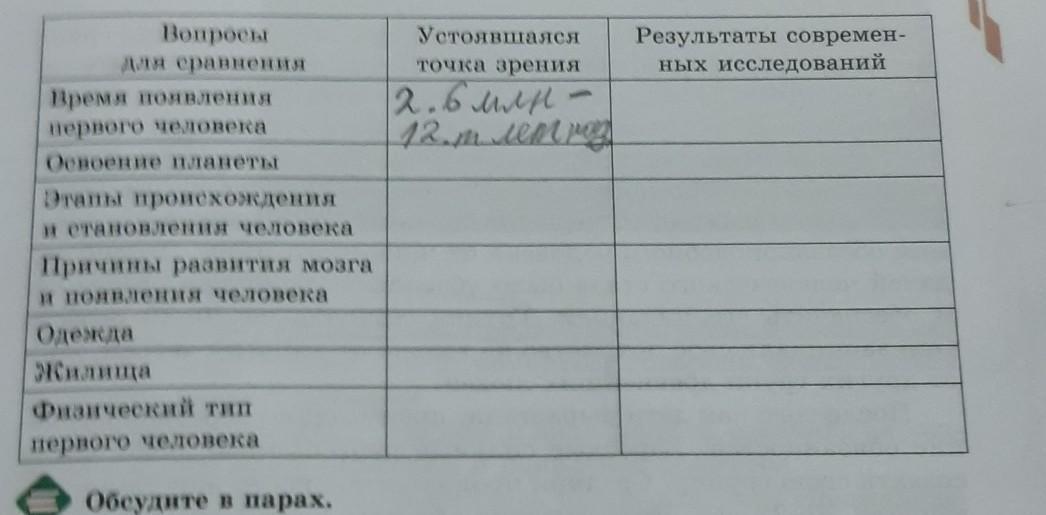 Вопросы
для сравнения
Устоявшаяся
точка зрения
Результаты современ-
ных исследований
Время появления
первого человека
2.6 млн -
12.т лет
Освоение планеты
Этапы происхождения
и становления человека
Причины развития мозга
и появления человека
Одежда
Жилища
Физический тип
первого человека
Обсудите в парах.